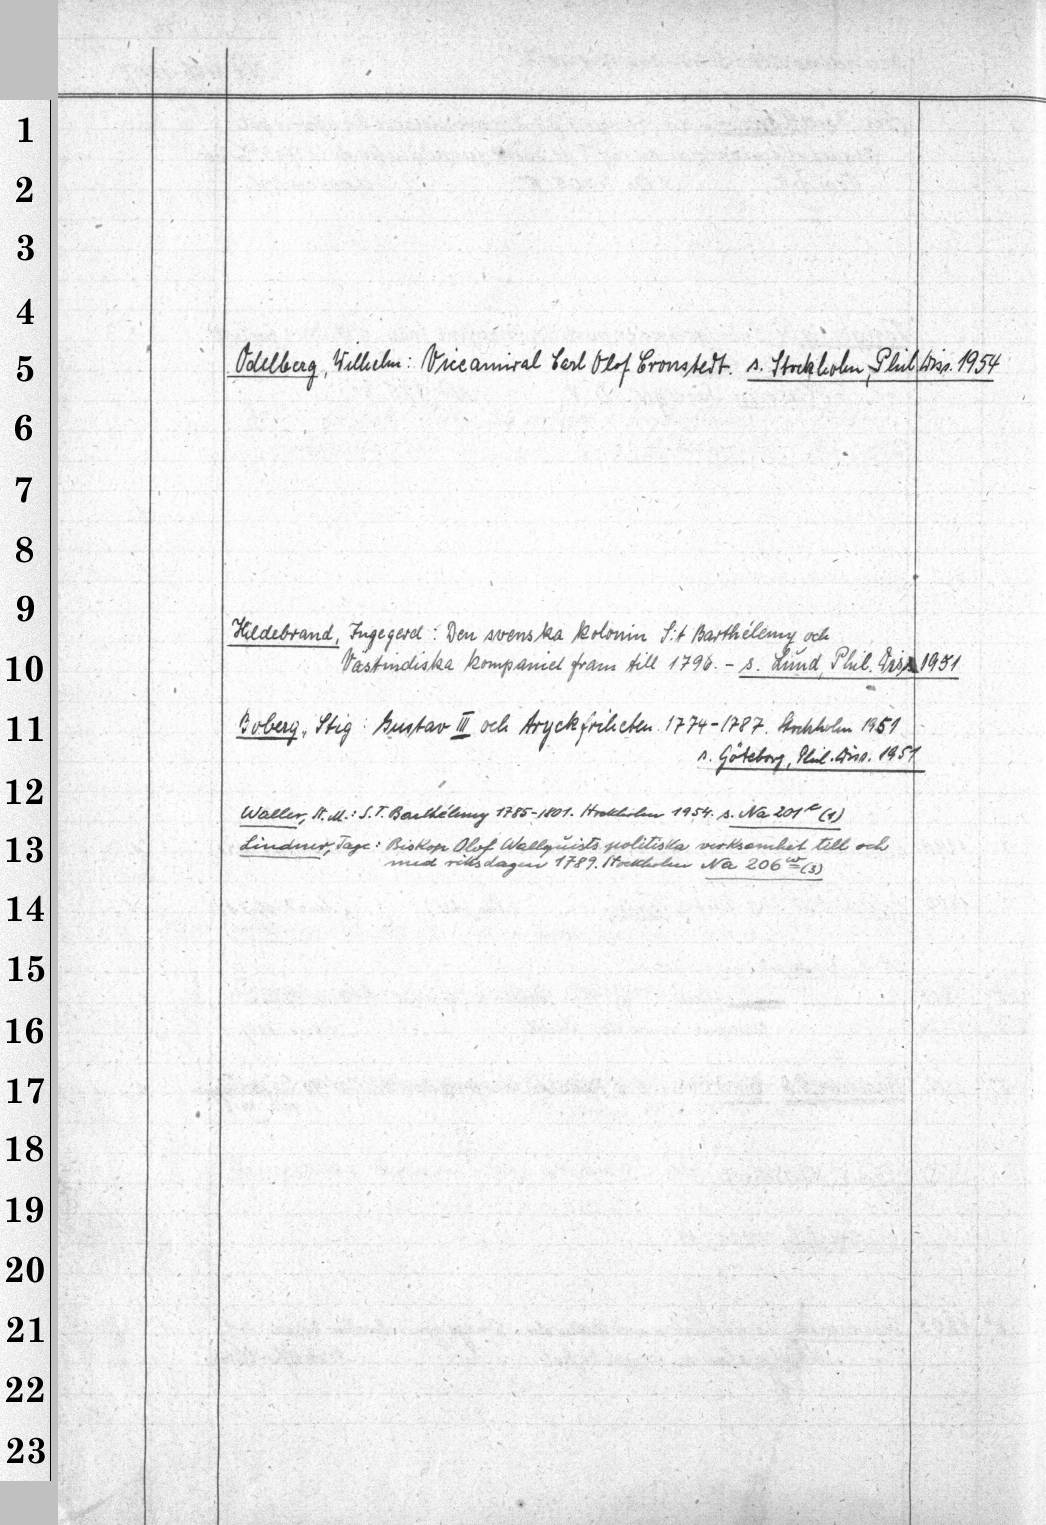 1
2
3
4
Odelberg, Wilhelm: Viceamiral Carl Olof Cronstedt. s. Stockholm, Phil. Diss. 1954
5
6
7
8
9
Hildebrand, Ingegerd: Den svenska kolonin S:t Barthélemy och
Västindiska kompaniet fram till 1796. – s. Lund, Phil. Diss. 1951
10
Boberg, Stig: Gustav III och tryckfriheten 1774-1787. Stockholm 1951
11
s. Göteborg, Phil. Diss. 1951
12
Waller, S. M.: S.T. Barthélemy 1785-1801. Stockholm 1954. s. Na 201 (1)
Lindner, Tage: Biskop Olof Wallquists politiska verksamhet till och
13
med riksdagen 1789. Stockholm Na 206 w (3)
14
15
16
17
18
19
20
21
22
23